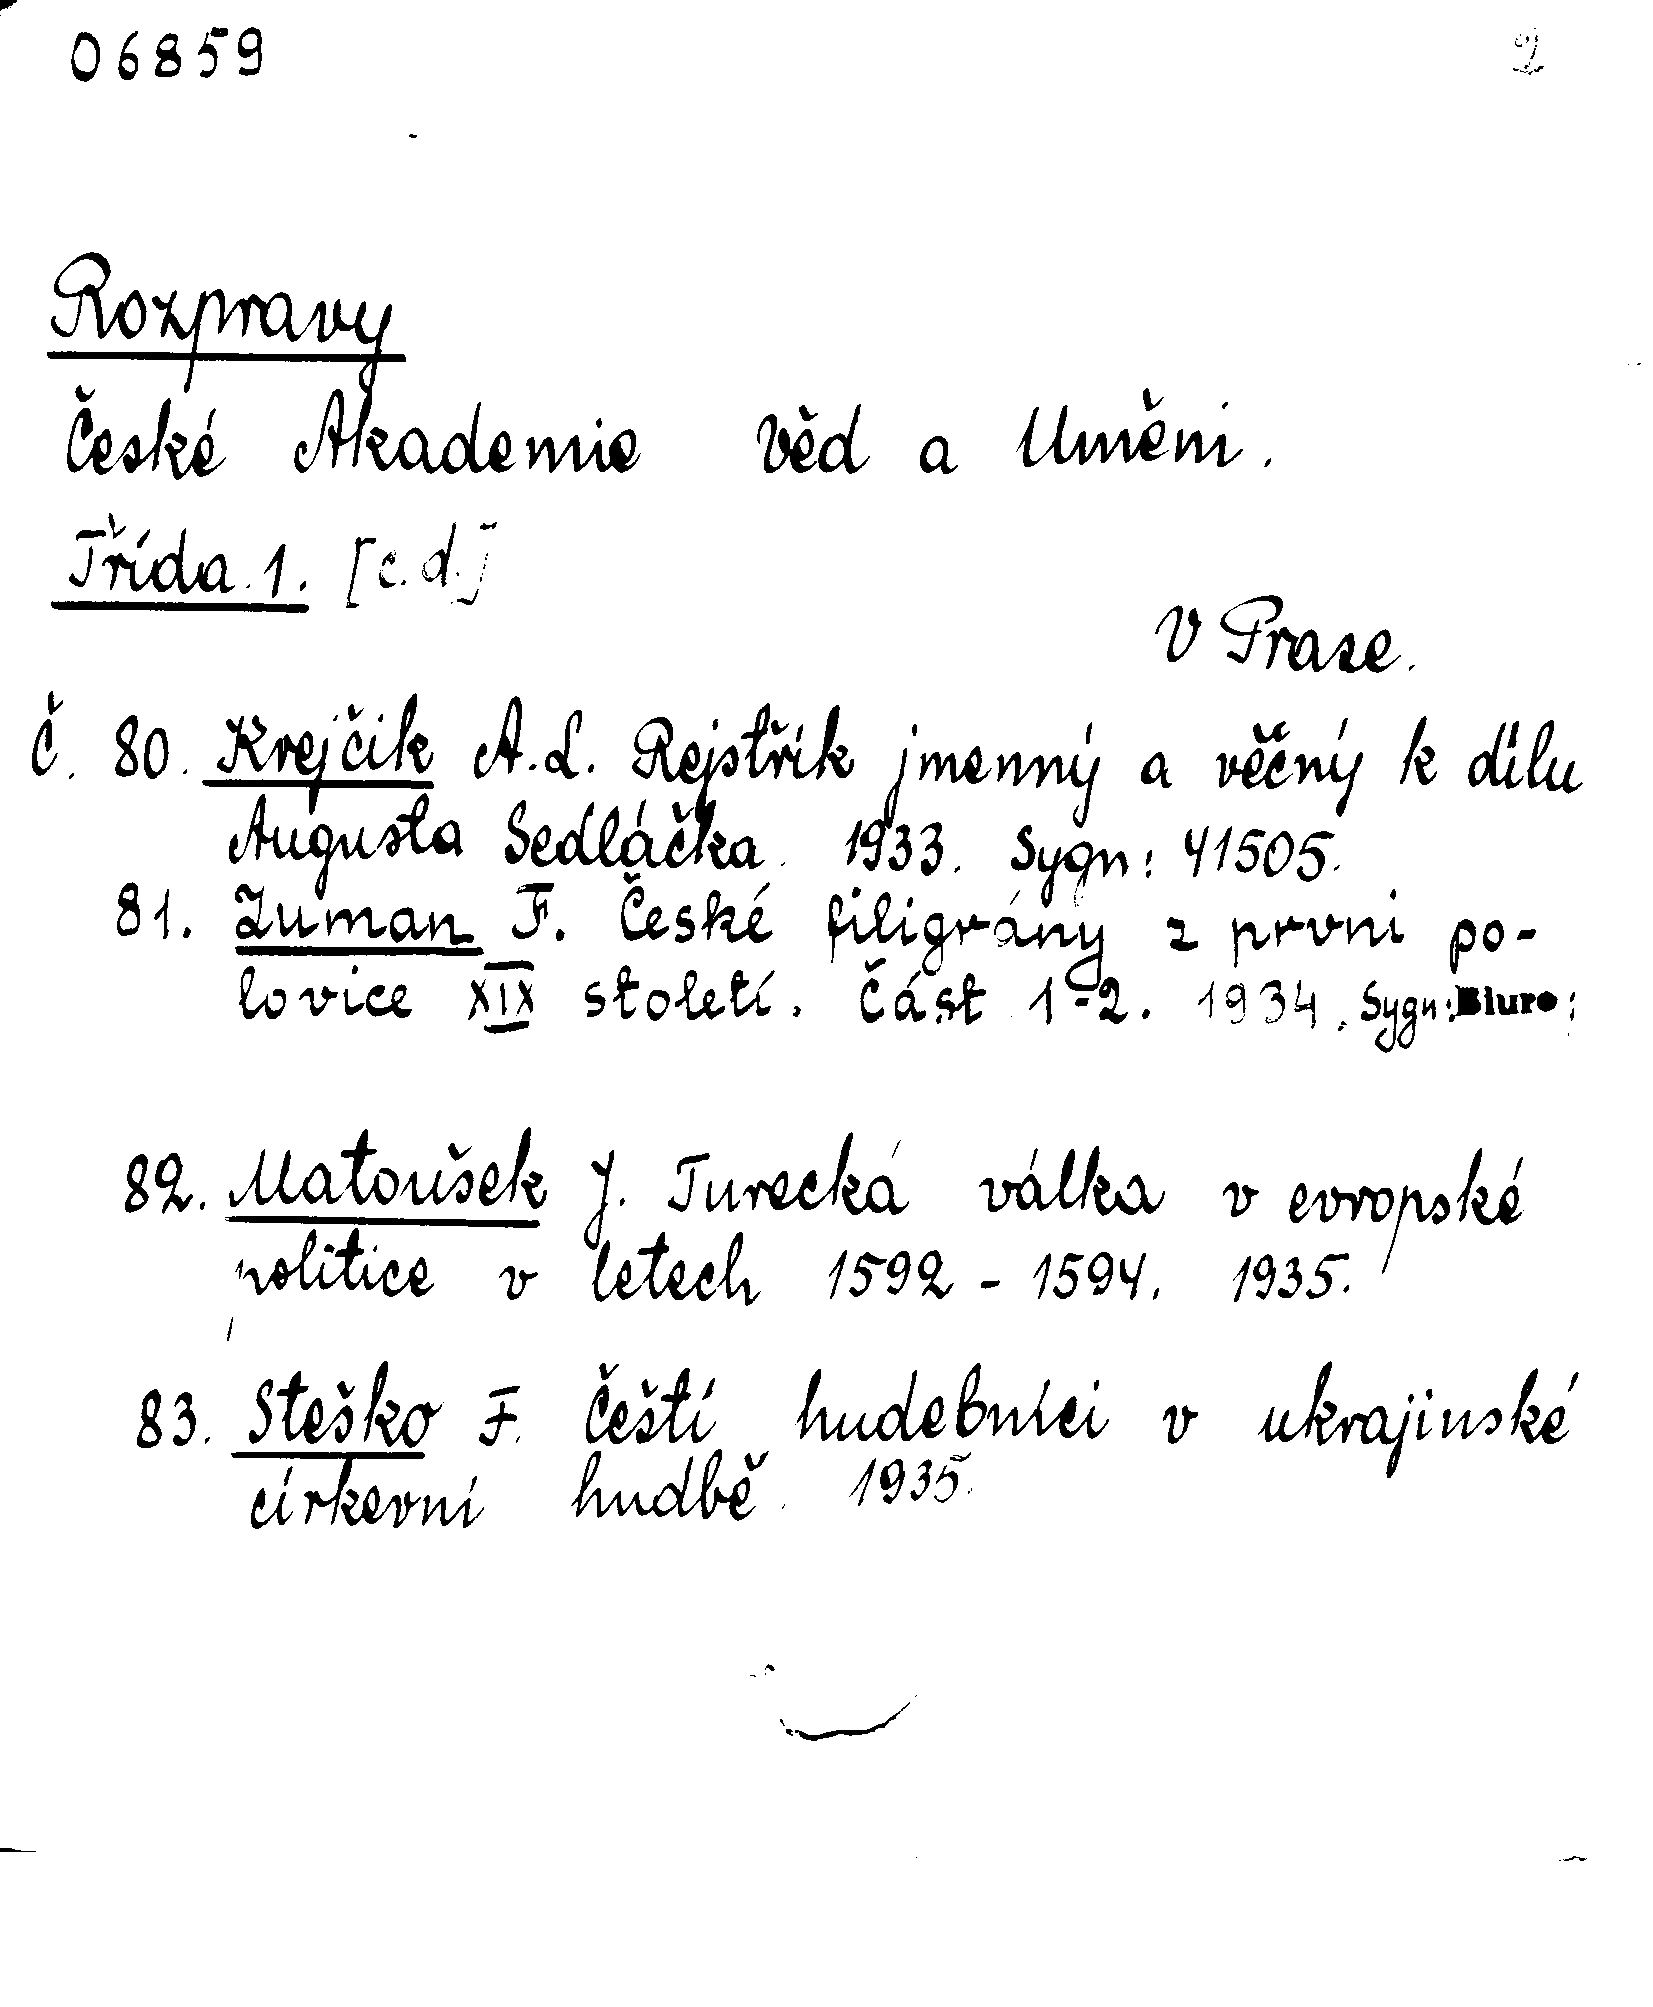 06859 2
Rozpravy
České Akademie Věd a Uměni.
Třída. 1. [c.d.]
V Praze.
Č. 80. Krejčík A.L. Rejstřík jmenný a věčný k dílu
Augusta Sedláčka. 1933. Sygn: 41505.
81. Zuman F. České filigrány z prvni po-
lovice XIX století. Část 1-2. 1934. Sygn: Biuro;
82. Matoušek J. Turecká válka v evropské
politice v letech 1592 - 1594. 1935.
83. Steško F. Čeští hudebníci v ukrajinské
církevní hudbě. 1935.